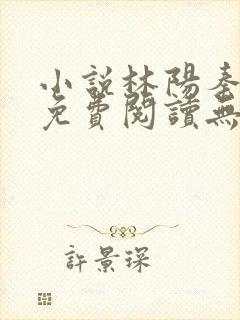 小說林陽秦
免費閱讀無
許景琛